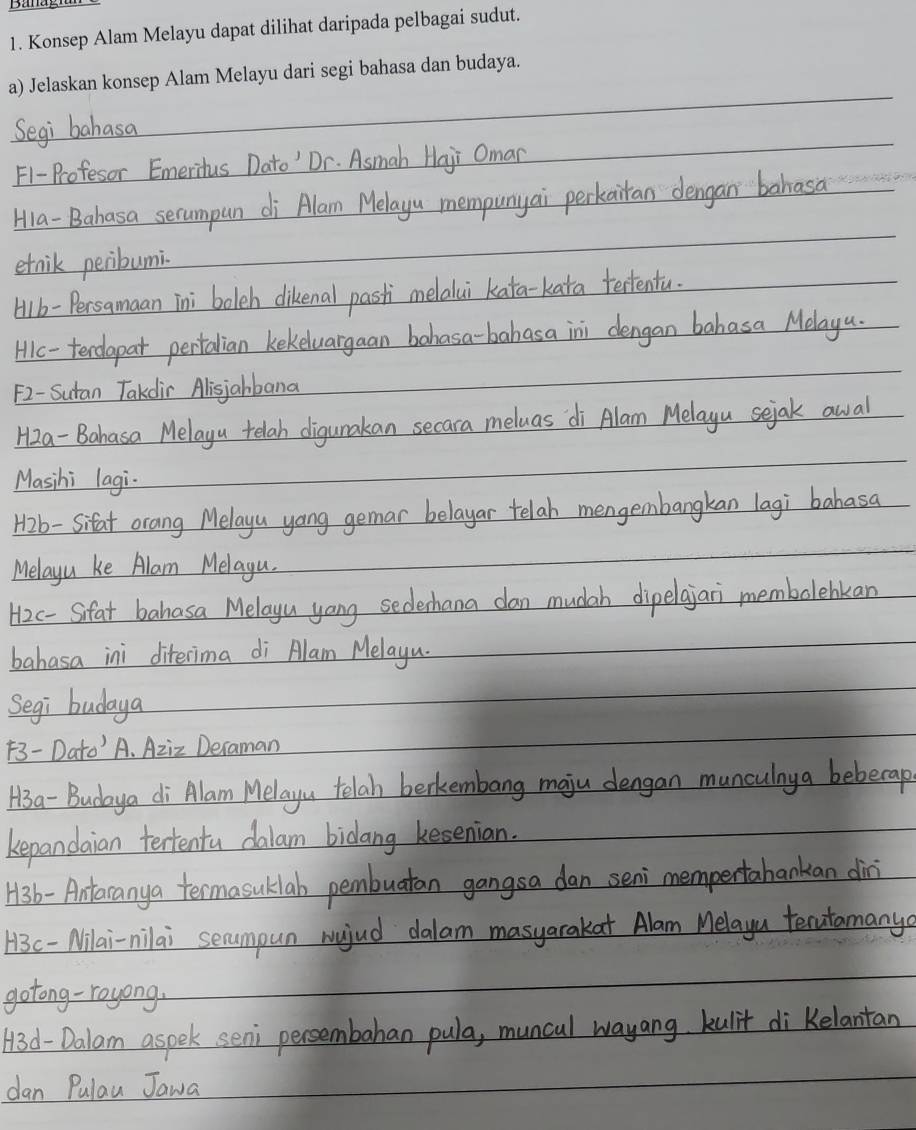 1. Konsep Alam Melayu dapat dilihat daripada pelbagai sudut.
a) Jelaskan konsep Alam Melayu dari segi bahasa dan budaya.
Segi bahasa
F1-Profesor Emeritus Dato' Dr. Asmah Haji Omar
H1a-Bahasa serumpun di Alam Melayu mempunyai perkaitan dengan bahasa
etnik peribumi.
H1b-Persamaan ini boleh dikenal pasti melalui kata-kata tertentu.
H1c-terdapat pertalian kekeluargaan bahasa-bahasa ini dengan bahasa Melayu.
F2-Sutan Takdir Alisjahbana
H2a-Bahasa Melayu telah digunakan secara meluas di Alam Melayu sejak awal
Masihi lagi.
H2b-Sifat orang Melayu yang gemar belayar telah mengembangkan lagi bahasa
Melayu ke Alam Melayu.
H2c-Sifat bahasa Melayu yang sederhana dan mudah dipelajari membolehkan
bahasa ini diterima di Alam Melayu.
Segi budaya
F3-Dato' A. Aziz Deraman
H3a-Budaya di Alam Melayu telah berkembang maju dengan munculnya beberap
kepandaian tertentu dalam bidang kesenian.
H3b-Antaranya termasuklah pembuatan gangsa dan seni mempertahankan diri
H3c-Nilai-nilai serumpun wujud dalam masyarakat Alam Melayu terutamanya
gotong-royong.
H3d-Dalam aspek seni persembahan pula, muncul wayang kulit di Kelantan
dan Pulau Jawa